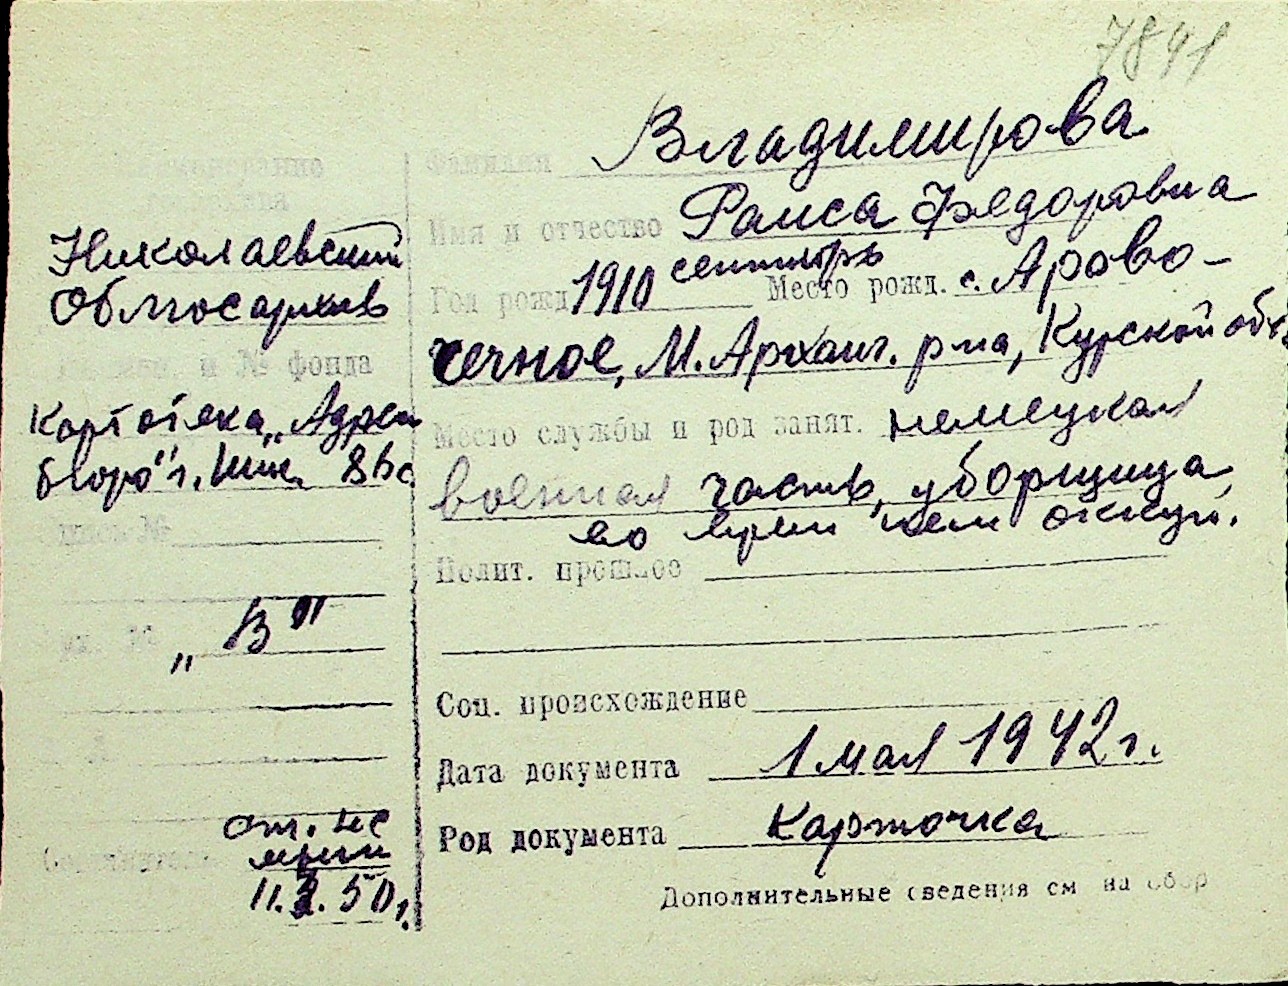 7841
Наименование
Николаевский
Облгосархив
и № фонда
Картотека „Адресн
бюро" г. Ник.
„В"
11.3.50 г.
Фамилия Владимирова
Имя и отчество Раиса Федоровна
Год рожд. 1910 сентябрь Место рожд. с. Арово-
чечное, М. Арханг. р-на, Курской обл.
Место службы и род занят. немецкая
военная часть, уборщица
во врем нем оккуп.
Полит. прошлое
Соц. происхождение
Дата документа 1 мая 1942 г.
Род документа Карточка
Дополнительные сведения см на обор